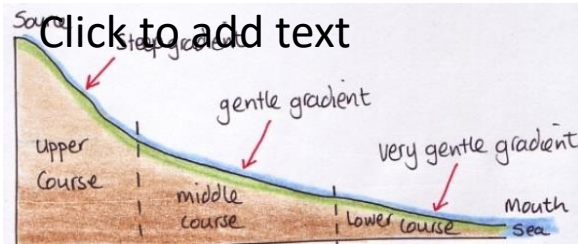 Source
Click to add text
steep gradient
gentle gradient
very gentle gradient
upper
Course
middle
course
Lower course
Mouth
Sea